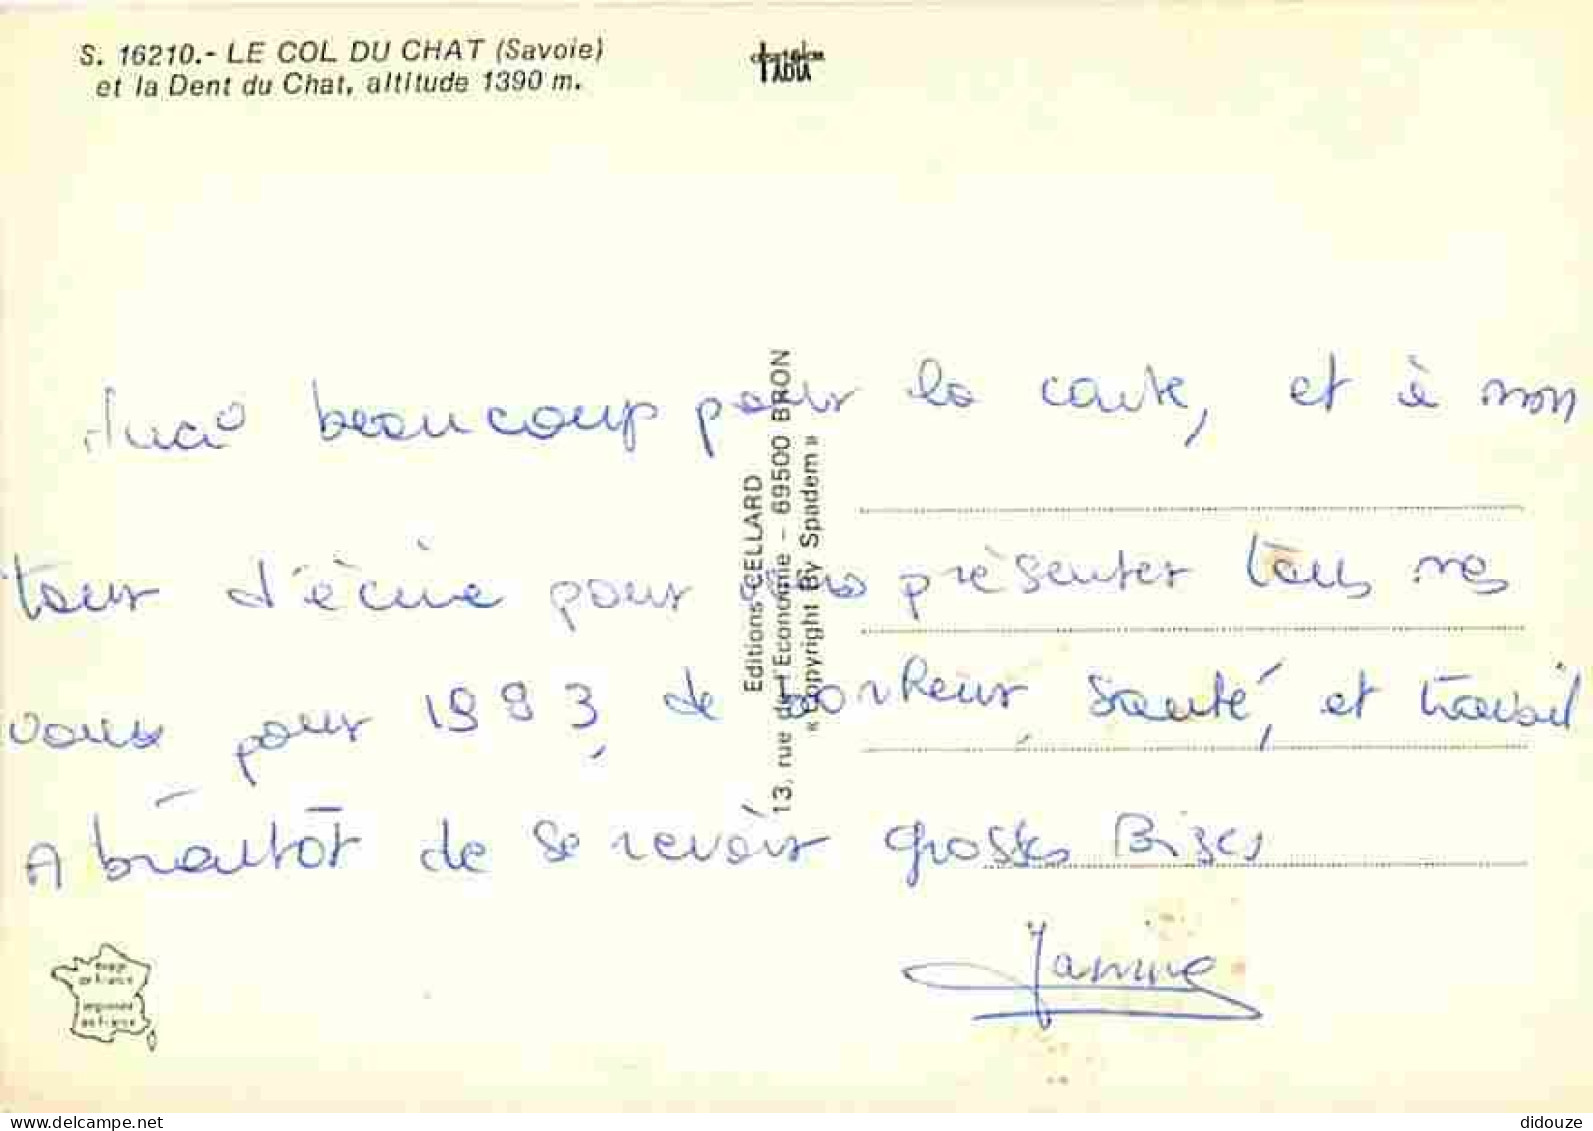 S. 16210.- LE COL DU CHAT (Savoie)
et la Dent du Chat, altitude 1390 m.
Merci beaucoup pour la carte, et à mon
tour d'écrire pour présenter tous mes
vœux pour 1993, de bonheur, santé, et travail
A bientôt de se revoir grosses Bises
Janine
Editions CELLARD
13, rue de l'Economie - 69500 BRON
« Copyright By Spadem »
image
de France
imprimée
en France
www.delcampe.net
didouze